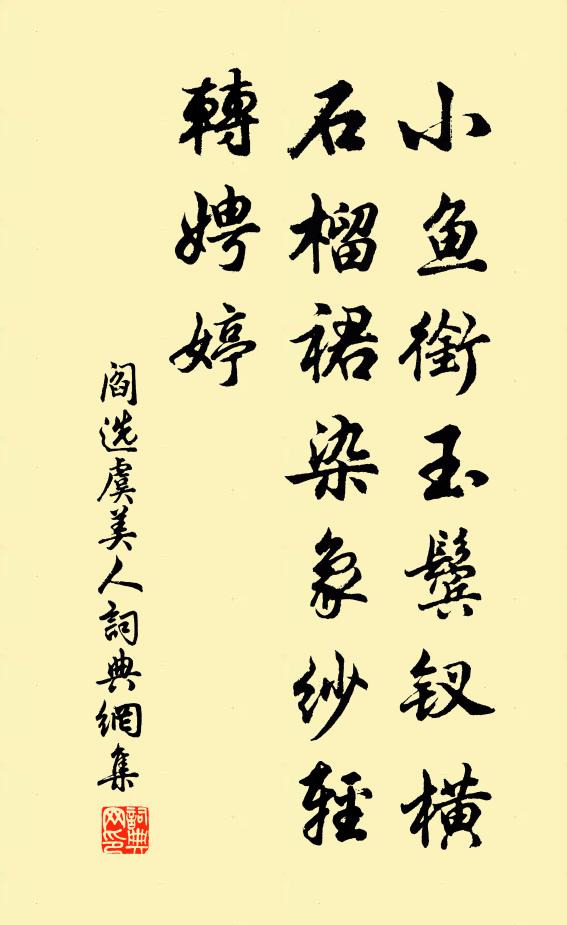 小鱼銜玉鬓钗橫
石榴裙染象纱轻
轉娉婷
阎选虞美人詞典網集
詞典网印